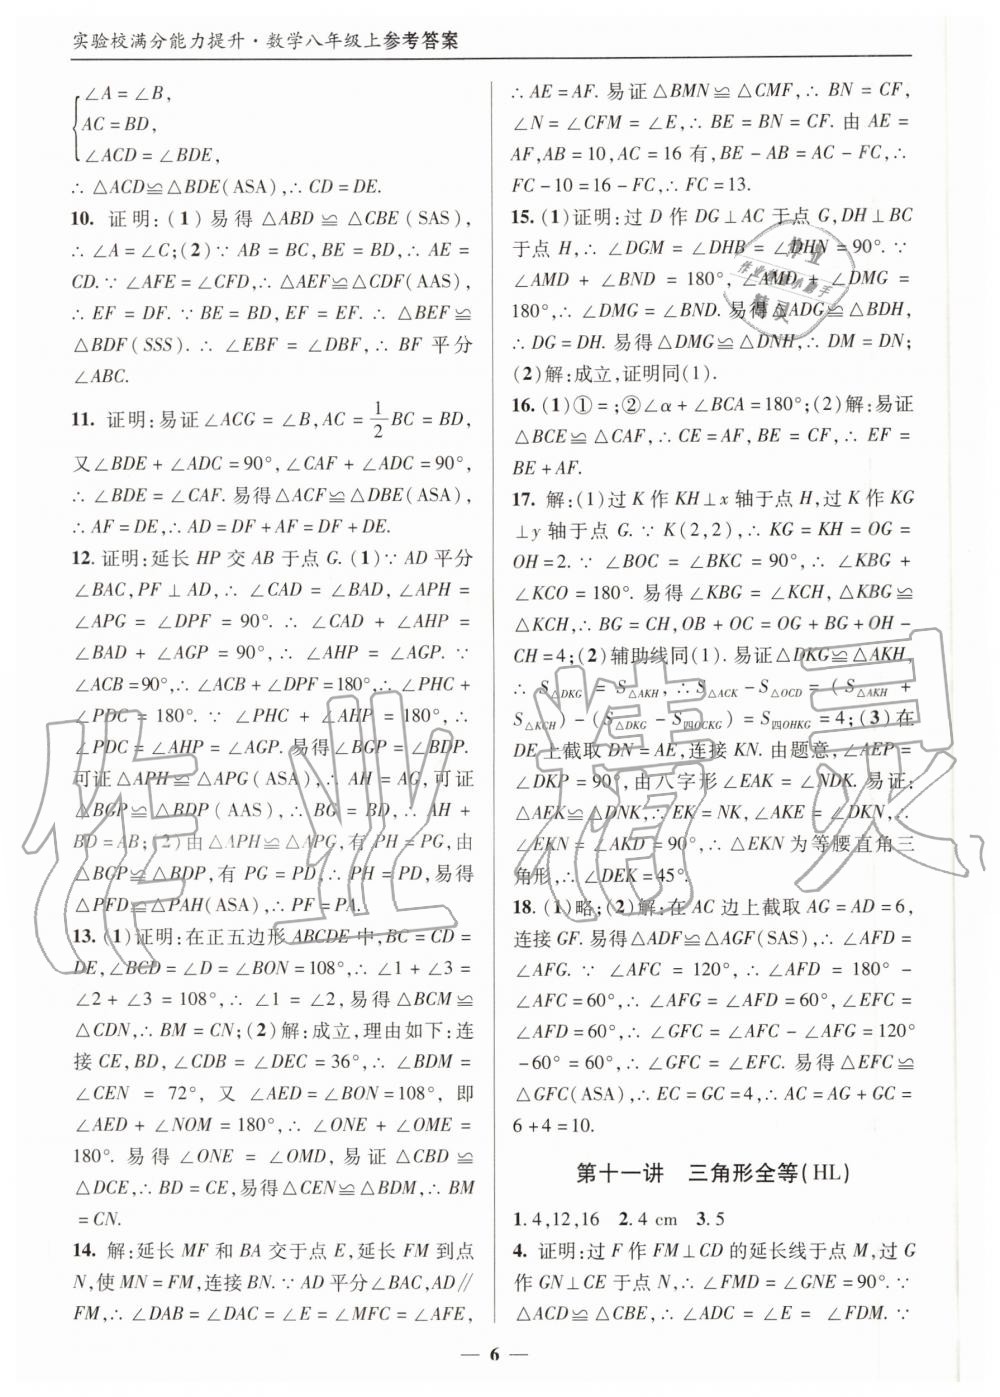 实验校满分能力提升·数学八年级上参考答案
∠A=∠B,
AC=BD,
∠ACD=∠BDE,
∴△ACD≌△BDE(ASA),∴CD=DE.
10. 证明:(1)易得△ABD≌△CBE(SAS),
∴∠A=∠C;(2)∵AB=BC,BE=BD,∴AE=
CD.∵∠AFE=∠CFD,∴△AEF≌△CDF(AAS),
∴EF=DF.∵BE=BD,EF=EF.∴△BEF≌
△BDF(SSS).∴∠EBF=∠DBF,∴BF平分
∠ABC.
11. 证明:易证∠ACG=∠B,AC=1/2BC=BD,
又∠BDE+∠ADC=90°,∠CAF+∠ADC=90°,
∴∠BDE=∠CAF.易得△ACF≌△DBE(ASA),
∴AF=DE,∴AD=DF+AF=DF+DE.
12. 证明:延长HP交AB于点G.(1)∵AD平分
∠BAC,PF⊥AD,∴∠CAD=∠BAD,∠APH=
∠APG=∠DPF=90°.∴∠CAD+∠AHP=
∠BAD+∠AGP=90°,∴∠AHP=∠AGP.∵
∠ACB=90°,∴∠ACB+∠DPF=180°,∴∠PHC+
∠PDC=180°.∵∠PHC+∠AHP=180°,∴
∠PDC=∠AHP=∠AGP.易得∠BGP=∠BDP.
可证△APH≌△APG(ASA),∴AH=AG,可证
△BGP≌△BDP(AAS),∴BG=BD,∴AH+
BD=AB;(2)由△APH≌△APG,有PH=PG,由
△BGP≌△BDP,有PG=PD,∴PH=PD,易得
△PFD≌△PAH(ASA),∴PF=PA.
13. (1)证明:在正五边形ABCDE中,BC=CD=
DE,∠BCD=∠D=∠BON=108°,∴∠1+∠3=
∠2+∠3=108°,∴∠1=∠2,易得△BCM≌
△CDN,∴BM=CN;(2)解:成立,理由如下:连
接CE,BD,∠CDB=∠DEC=36°,∴∠BDM=
∠CEN=72°,又∠AED=∠BON=108°,即
∠AED+∠NOM=180°,∴∠ONE+∠OME=
180°.易得∠ONE=∠OMD,易证△CBD≌
△DCE,∴BD=CE,易得△CEN≌△BDM,∴BM
=CN.
14. 解:延长MF和BA交于点E,延长FM到点
N,使MN=FM,连接BN.∵AD平分∠BAC,AD∥
FM,∴∠DAB=∠DAC=∠E=∠MFC=∠AFE,
∴AE=AF.易证△BMN≌△CMF,∴BN=CF,
∠N=∠CFM=∠E,∴BE=BN=CF.由AE=
AF,AB=10,AC=16有,BE-AB=AC-FC,∴
FC-10=16-FC,∴FC=13.
15. (1)证明:过D作DG⊥AC于点G,DH⊥BC
于点H,∴∠DGM=∠DHB=∠DHN=90°.∵
∠AMD+∠BND=180°,∠AMD+∠DMG=
180°,∴∠DMG=∠BND.易得△ADG≌△BDH,
∴DG=DH.易得△DMG≌△DNH,∴DM=DN;
(2)解:成立,证明同(1).
16. (1)①=;②∠α+∠BCA=180°;(2)解:易证
△BCE≌△CAF,∴CE=AF,BE=CF,∴EF=
BE+AF.
17. 解:(1)过K作KH⊥x轴于点H,过K作KG
⊥y轴于点G.∵K(2,2),∴KG=KH=OG=
OH=2.∵∠BOC=∠BKC=90°,∴∠KBG+
∠KCO=180°.易得∠KBG=∠KCH,△KBG≌
△KCH,∴BG=CH,OB+OC=OG+BG+OH-
CH=4;(2)辅助线同(1).易证△DKG≌△AKH,
∴S△DKG=S△AKH,∴S△ACK-S△OCD=(S△AKH+
S△KCH)-(S△DKG-S四OCKG)=S四OHKG=4;(3)在
DE上截取DN=AE,连接KN.由题意,∠AEP=
∠DKP=90°,由八字形∠EAK=∠NDK.易证:
△AEK≌△DNK,∴EK=NK,∠AKE=∠DKN,∴
∠EKN=∠AKD=90°.∴△EKN为等腰直角三
角形,∴∠DEK=45°.
18. (1)略;(2)解:在AC边上截取AG=AD=6,
连接GF.易得△ADF≌△AGF(SAS),∴∠AFD=
∠AFG.∵∠AFC=120°,∴∠AFD=180°-
∠AFC=60°,∴∠AFG=∠AFD=60°,∠EFC=
∠AFD=60°,∴∠GFC=∠AFC-∠AFG=120°
-60°=60°,∴∠GFC=∠EFC.易得△EFC≌
△GFC(ASA),∴EC=GC=4,∴AC=AG+GC=
6+4=10.
第十一讲 三角形全等(HL)
1.4,12,16 2.4 cm 3.5
4. 证明:过F作FM⊥CD的延长线于点M,过G
作GN⊥CE于点N,∴∠FMD=∠GNE=90°.∵
△ACD≌△CBE,∴∠ADC=∠E=∠FDM.∵
— 6 —
作业精灵